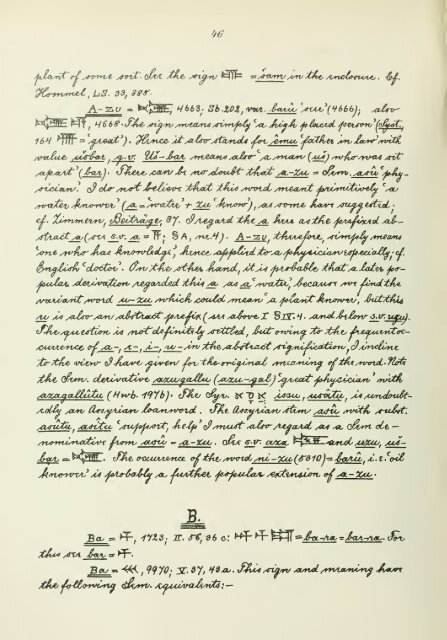 46
plant of some sort. See the sign = šam in the enclosure. Cf.
Hommel, LS. 33, 385.
A-zu = 4663. Sb. 202, var. barû 'seer' (4666); also
4668. The sign means simply 'a high placed person' (Syst.,
164 = 'great'). Hence it also stands for emu 'father in law' with
value ušbar, q.v. Uš-bar means also 'a man (uš) who was sit
apart' (bar). There can be no doubt that a-zu = Sem. asû 'phy-
sician'. I do not believe that this word meant primitively 'a
water knower' (a = 'water' + zu 'know'), as some have suggested;
cf. Zimmern, Beiträge, 37. I regard the a here as the prefixed ab-
stract a (see s.v. a = §A, nr. 4). A-zu, therefore, simply means
'one who has knowledge', hence applied to a physician especially; cf.
English 'doctor'. On the other hand, it is probable that a later po-
pular derivation regarded this a as a 'water', because we find the
variant word u-zu which could mean 'a plant knower', but this
u is also an abstract prefix (see above I §IV. 4. and below s.v. ugu).
The question is not definitely settled, but owing to the frequent oc-
currence of a-, e-, i-, u- in the abstract signification, I incline
to the view I have given for the original meaning of the word. Note
the Sem. derivative azugallu (azu-gal) 'great physician' with
azagallûtu (Hwb. 197b). The Syr. אסא issu, usâtu, is undoubt-
edly an Assyrian loanword. The Assyrian stem asû with subst.
asûtu, asîtu 'support, help' I must also regard as a Sem de-
nominative from asû = a-zu. See s.v. aza and uzu, uš-
bar = . The occurrence of the word ni-zu (5310) = barû, i.e. 'oil
knower' is probably a further popular extension of a-zu.
B.
Ba = 1723; II. 56, 36 c: = ba-ra = bar-ra. For
this see bar = .
Ba = 9970; V. 37, 43a. This sign and meaning have
the following Sem. equivalents:—